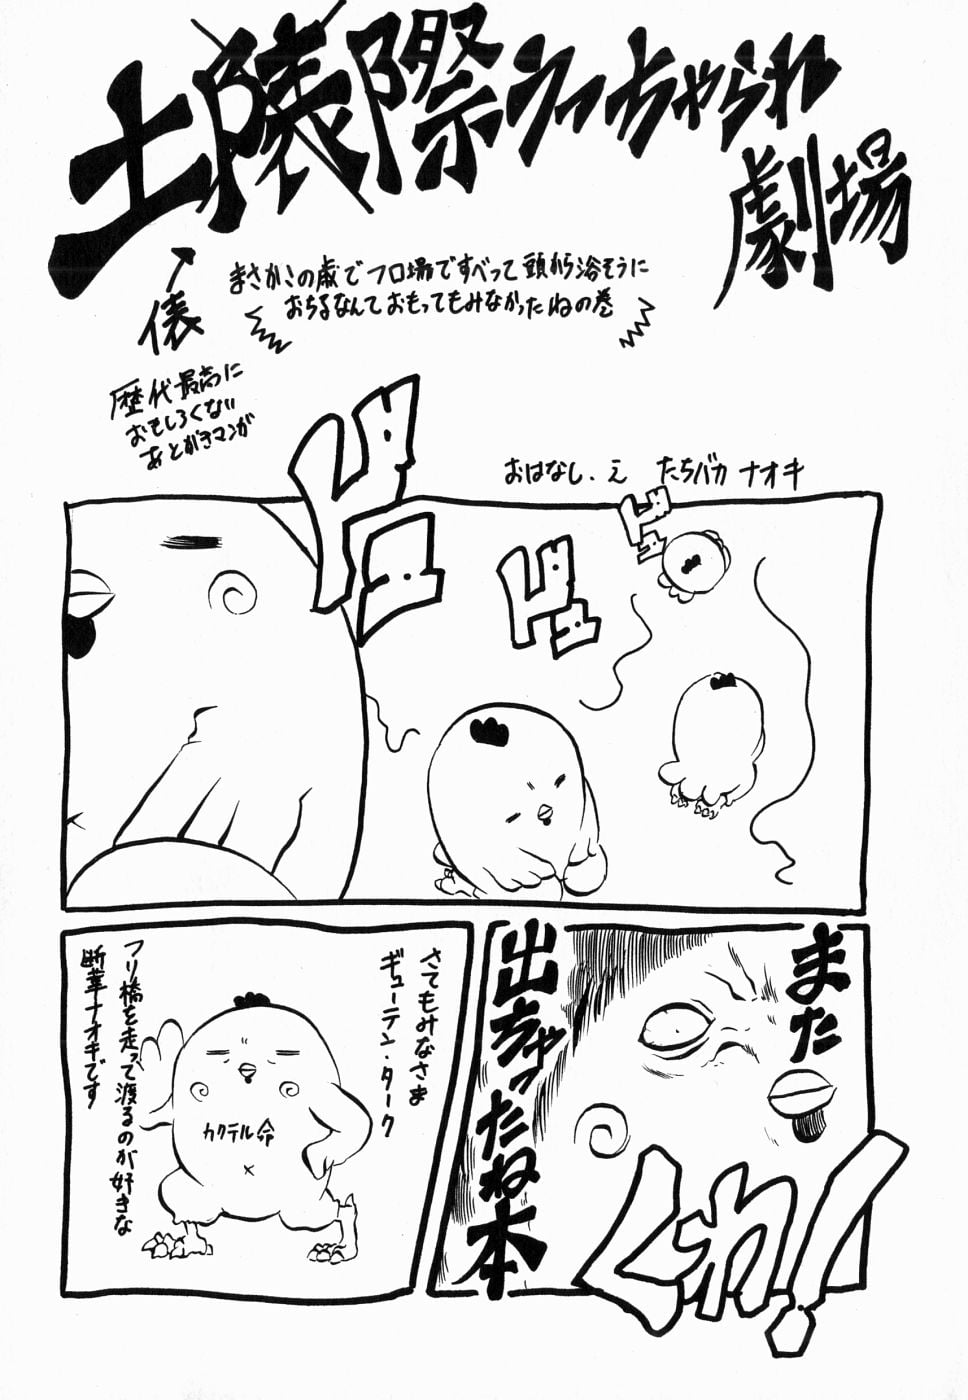 土俵際うっちゃられ
劇場
俵
まさかこの歳でフロ場ですべって頭から浴そうに
おちるなんておもってもみなかったねの巻
歴代最高に
おもしろくない
あとがきマンガ
おはなし.え たちバカ ナオキ
ドドドドュ
ドュ
ドュ
また
出ちゃったね本
くわっ!
さてもみなさま
ギューテン・ターク
カクテル命
フリ橋を走って渡るのが好きな
断華ナオキです